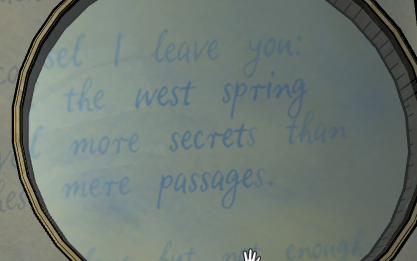 sel I leave you:
the west spring
more secrets than
mere passages.
but not enough